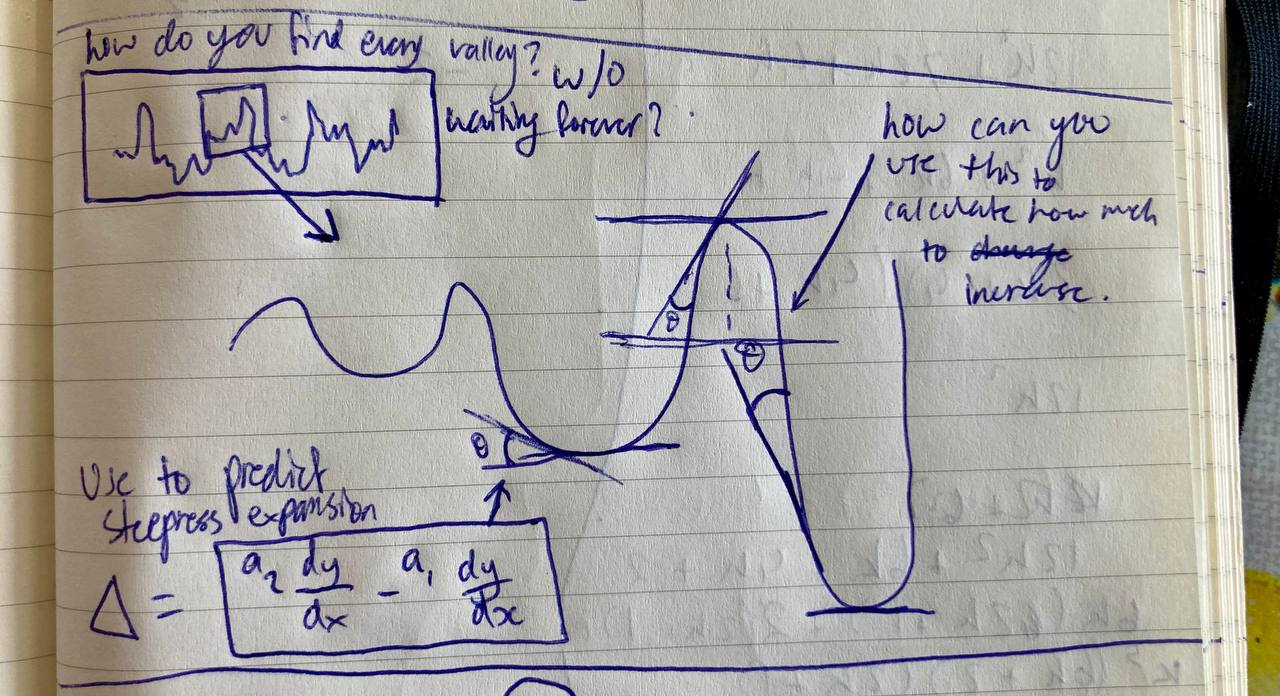 how do you find every valley? w/o
waiting forever?
how can you
use this to
calculate how much
to change
increase.
θ
θ
θ
Use to predict
steepness expansion
Δ = a₂ dy/dx - a₁ dy/dx